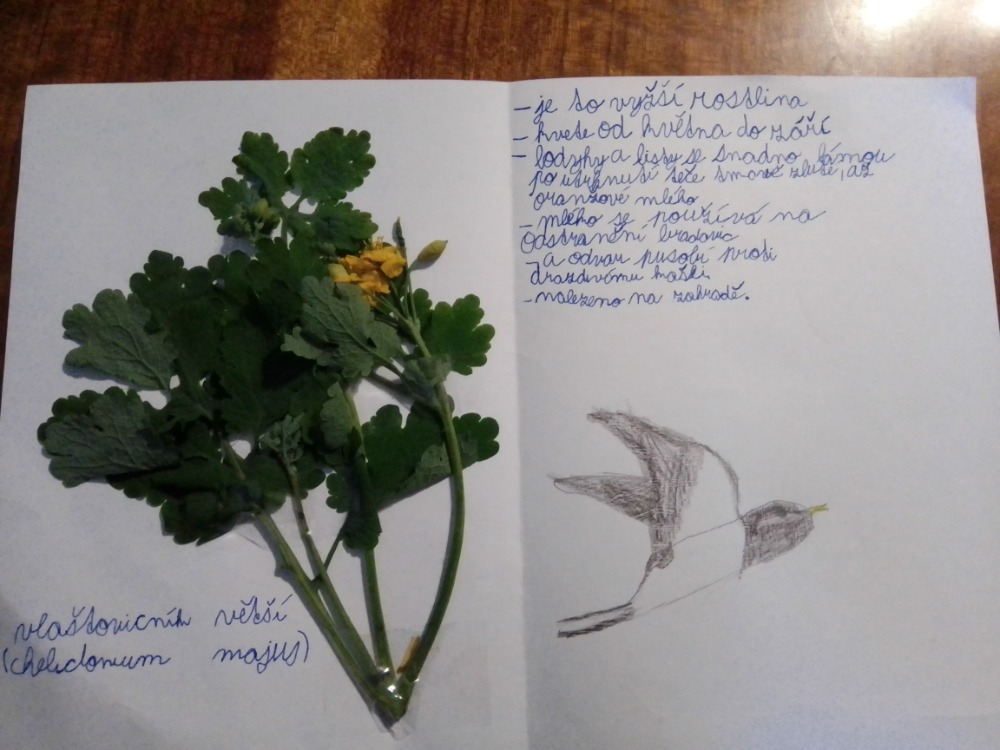 vlaštovičník větší
(chelidonium majus)
- je to vyžší rostlina
- kvete od května do září
- lodyhy a listy se snadno lámou
po utrhnutí teče žluté, až
oranžové mléko
- mléko se používá na
odstranění bradavic
a odvar pusobí proti
dráždivému kašli
- nalezeno na zahradě.